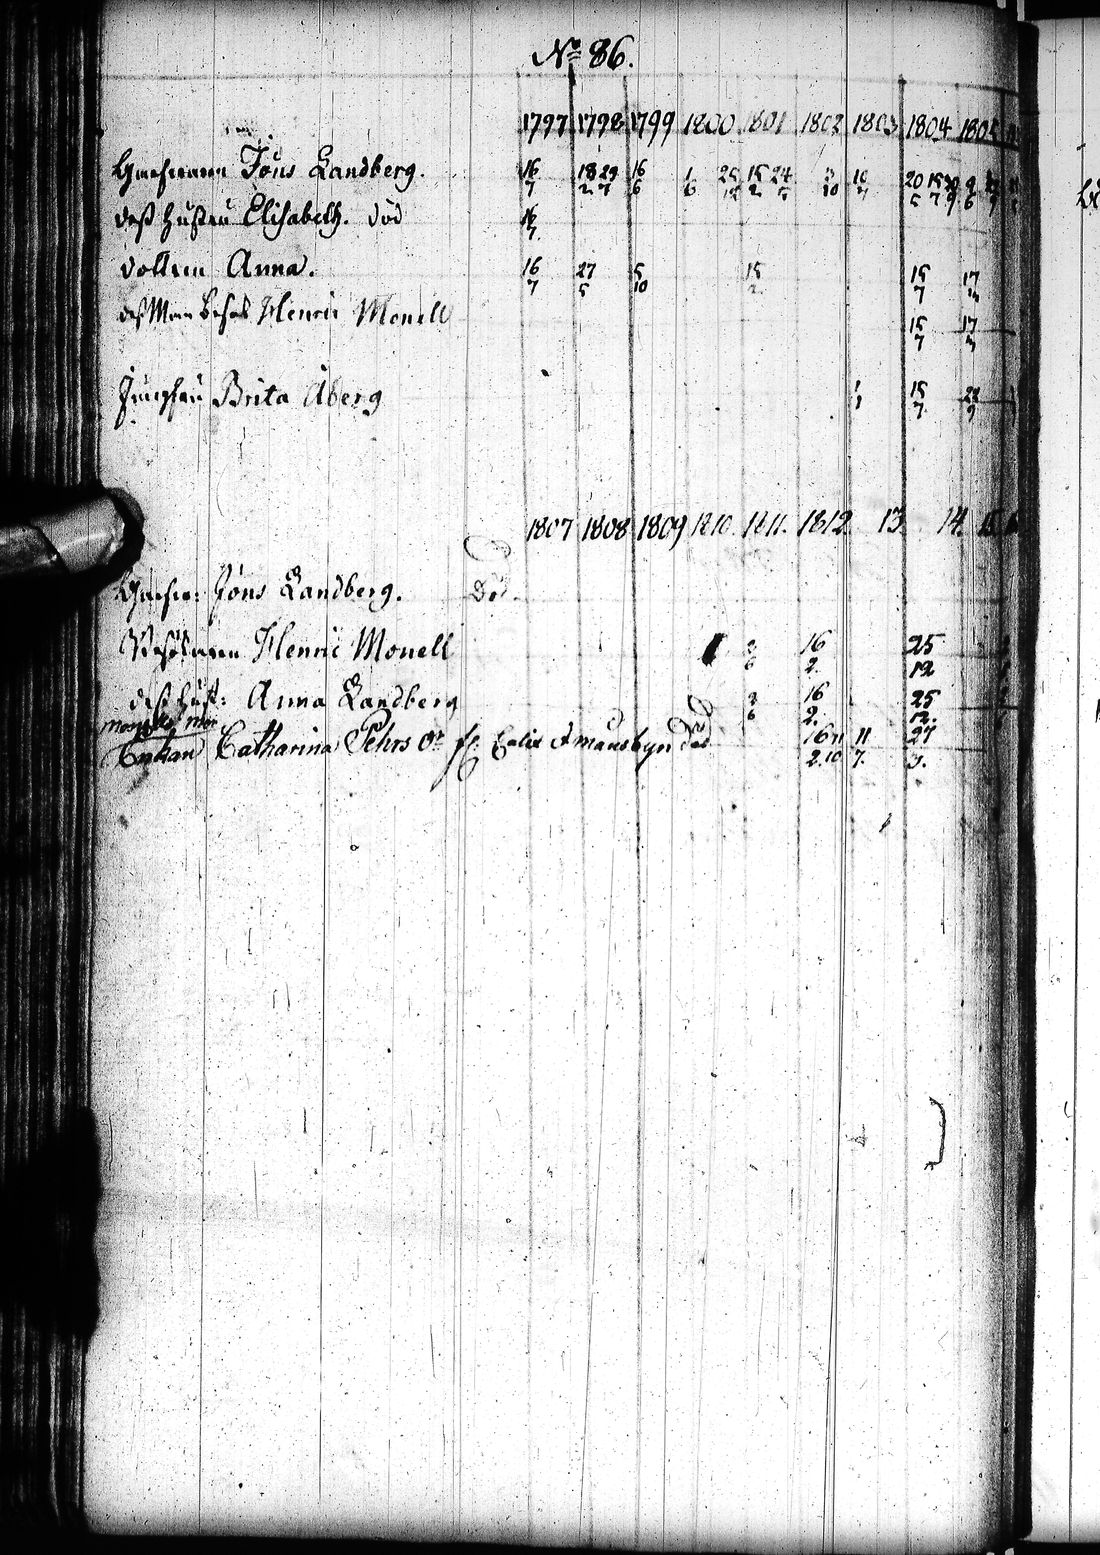 No 86.
1797 1798 1799 1800 1801 1802 1803 1804 1805
Jöns Landberg. 16/7 18/2 29/7 16/6 1/6 25/12 15/2 24/5 3/10 10/7 20/5 15/7
deß hustru Elisabeth. död 16/7
dottren Anna. 16/7 27/5 5/10 15/2 15/7 17/3
Henric Monell 15/7 17/3
Jungfru Brita Åberg 1/1 15/7 22/9
1807 1808 1809 1810. 1811. 1812. 13. 14. 15
Jöns Landberg. Död.
Henric Monell 2/6 16/2. 25/12
deß hust: Anna Landberg 2/6 16/2. 25/12.
Monells mor
Enkan Catharina Pehrs Dr Calix Månsbyn död 16/2. 11/10 11/7. 27/3.